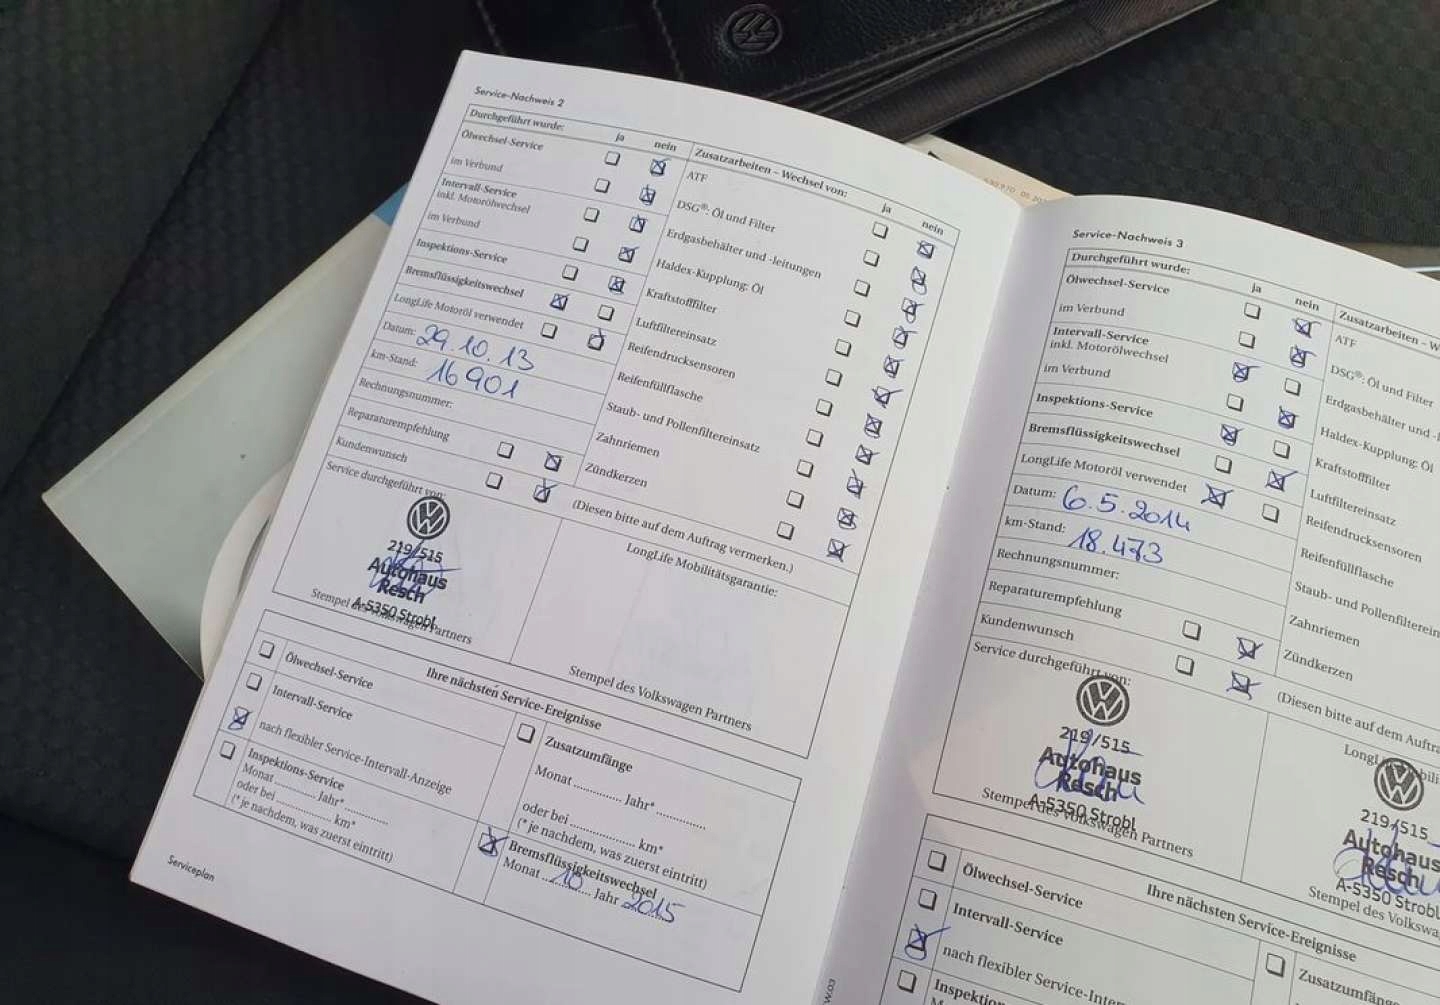 Service-Nachweis 2
Durchgeführt wurde: ja nein
Ölwechsel-Service
im Verbund
Intervall-Service
inkl. Motorölwechsel
im Verbund
Inspektions-Service
Bremsflüssigkeitswechsel
LongLife Motoröl verwendet
Datum: 29.10.13
km-Stand: 16901
Rechnungsnummer:
Reparaturempfehlung
Kundenwunsch
Zusatzarbeiten – Wechsel von: ja nein
ATF
DSG®: Öl und Filter
Erdgasbehälter und -leitungen
Haldex-Kupplung: Öl
Kraftstofffilter
Luftfiltereinsatz
Reifendrucksensoren
Reifenfüllflasche
Staub- und Pollenfiltereinsatz
Zahnriemen
Zündkerzen
(Diesen bitte auf dem Auftrag vermerken.)
Service durchgeführt von:
219/515
Autohaus
Resch
A-5350 Strobl
Stempel des Volkswagen Partners
LongLife Mobilitätsgarantie:
Stempel des Volkswagen Partners
Ihre nächsten Service-Ereignisse
Ölwechsel-Service
Intervall-Service
nach flexibler Service-Intervall-Anzeige
Inspektions-Service
Monat ............ Jahr* ............
oder bei ............ km*
(* je nachdem, was zuerst eintritt)
Zusatzumfänge
Monat ............ Jahr* ............
oder bei ............ km*
(* je nachdem, was zuerst eintritt)
Bremsflüssigkeitswechsel
Monat 10 Jahr 2015
Serviceplan
Service-Nachweis 3
Durchgeführt wurde: ja nein
Ölwechsel-Service
im Verbund
Intervall-Service
inkl. Motorölwechsel
im Verbund
Inspektions-Service
Bremsflüssigkeitswechsel
LongLife Motoröl verwendet
Datum: 6.5.2014
km-Stand: 18.473
Rechnungsnummer:
Reparaturempfehlung
Kundenwunsch
Zusatzarbeiten – W
ATF
DSG®: Öl und Filter
Erdgasbehälter und -l
Haldex-Kupplung: Öl
Kraftstofffilter
Luftfiltereinsatz
Reifendrucksensoren
Reifenfüllflasche
Staub- und Pollenfilterein
Zahnriemen
Zündkerzen
(Diesen bitte auf dem Auftra
Service durchgeführt von:
219/515
Autohaus
Resch
A-5350 Strobl
Stempel des Volkswagen Partners
219/515
Autohaus
Resch
A-5350 Strobl
Stempel des Volkswag
Ihre nächsten Service-Ereignisse
Ölwechsel-Service
Intervall-Service
nach flexibler Service-Inter
Inspektion
Zusatzumfänge